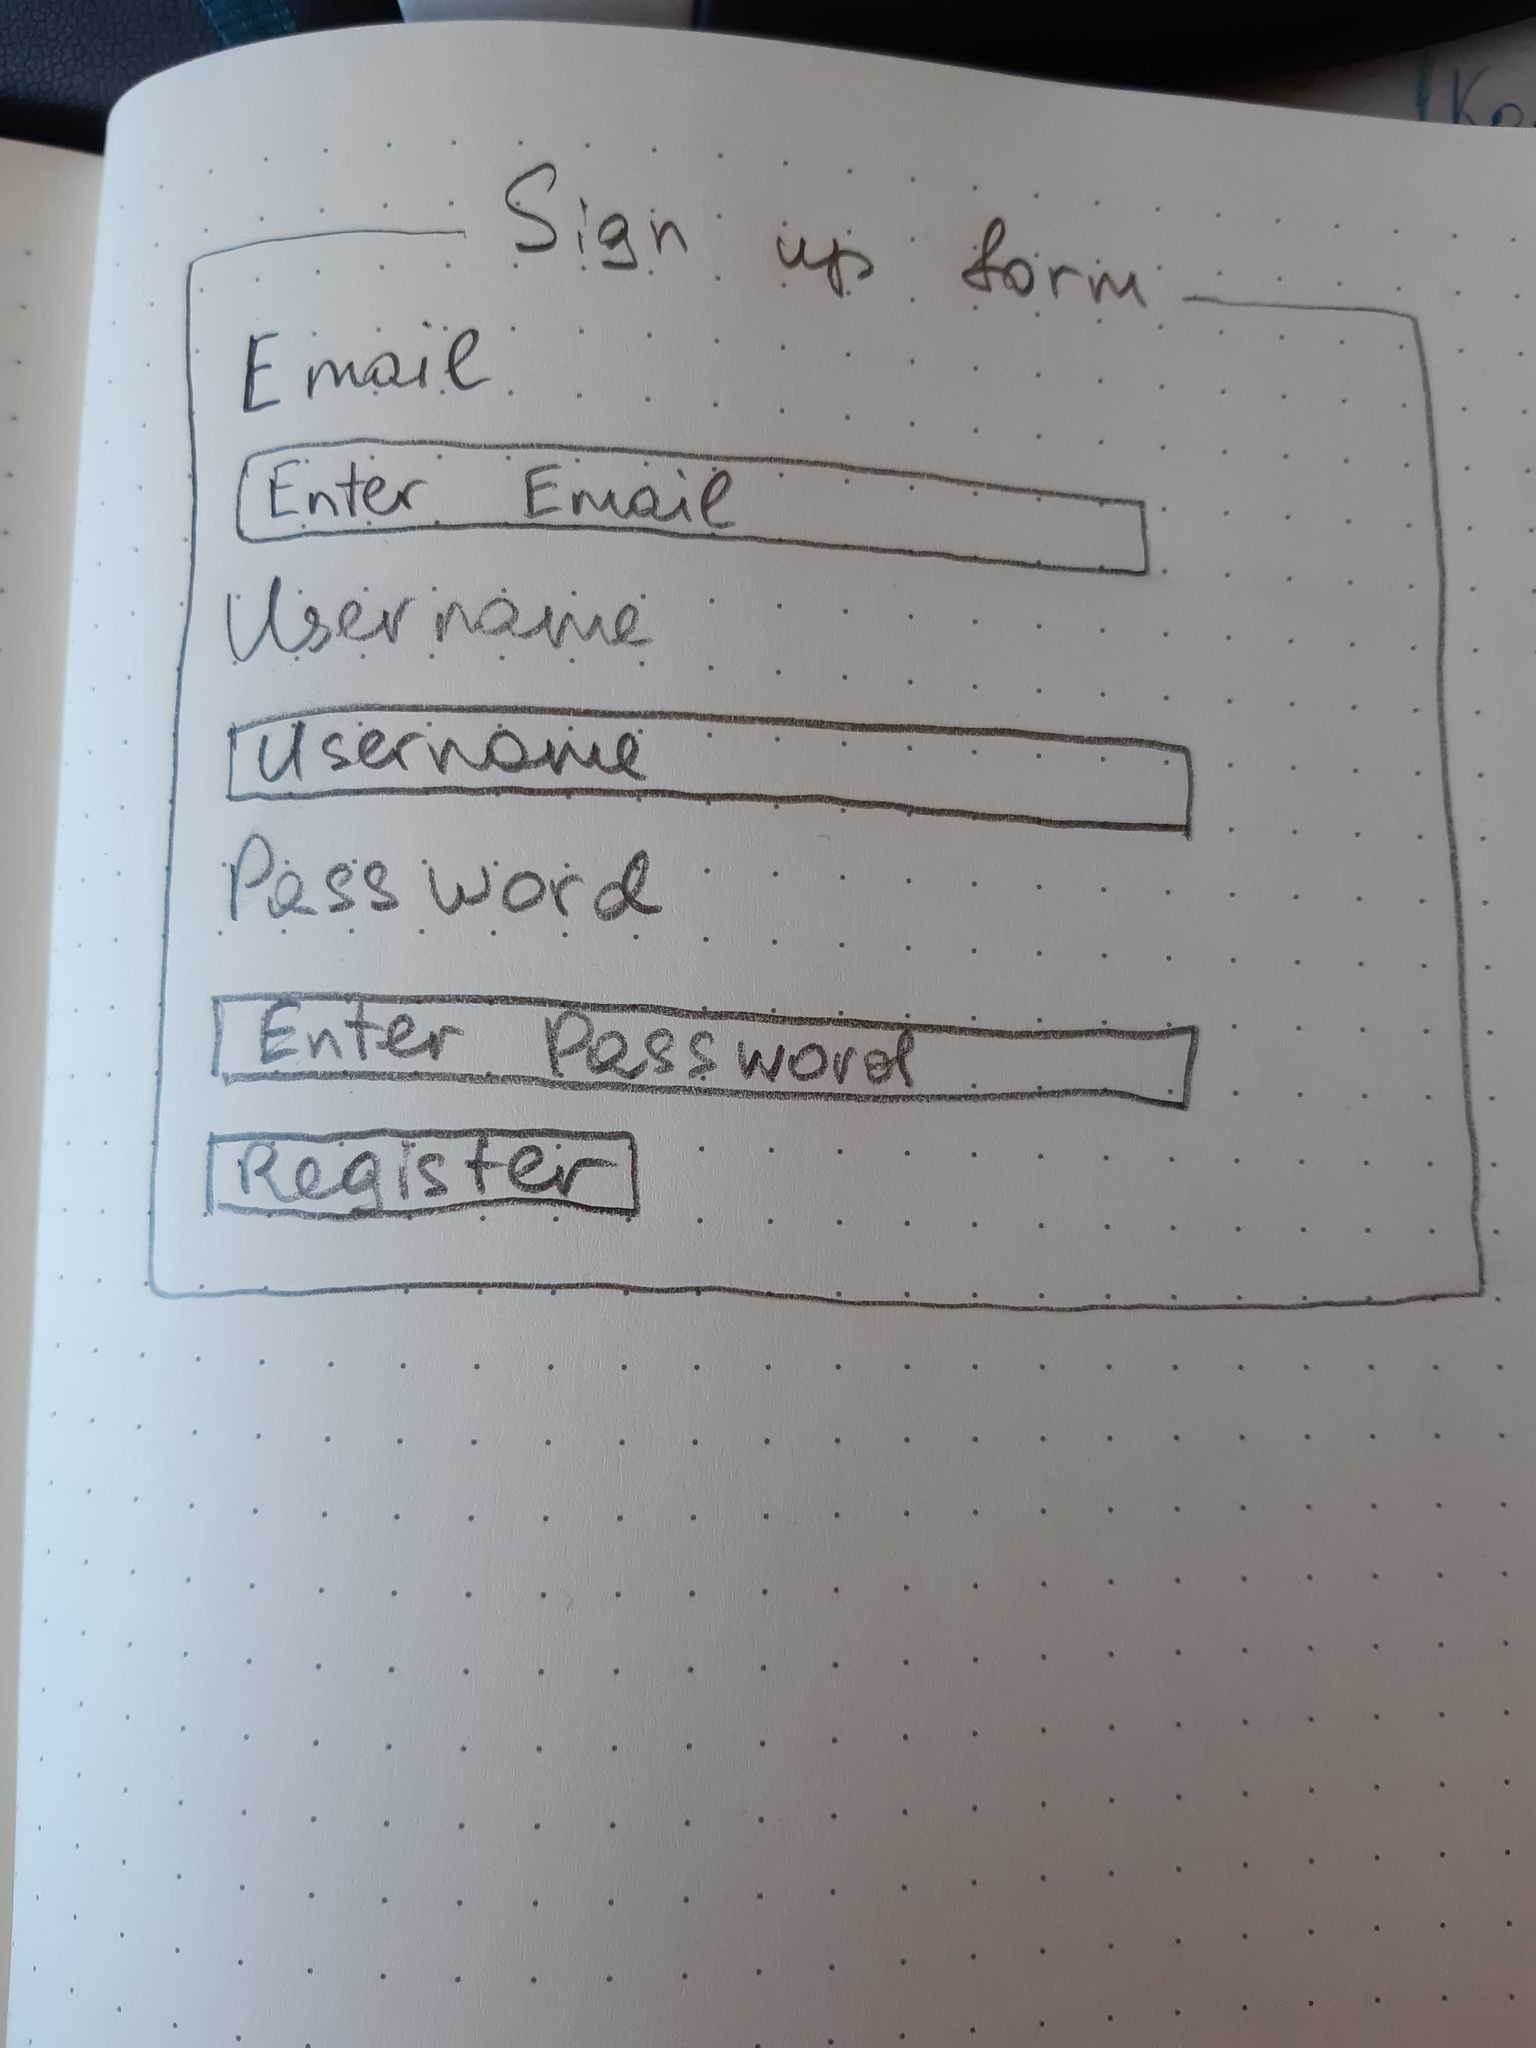 Sign up form
Email
Enter Email
Username
Username
Password
Enter Password
Register